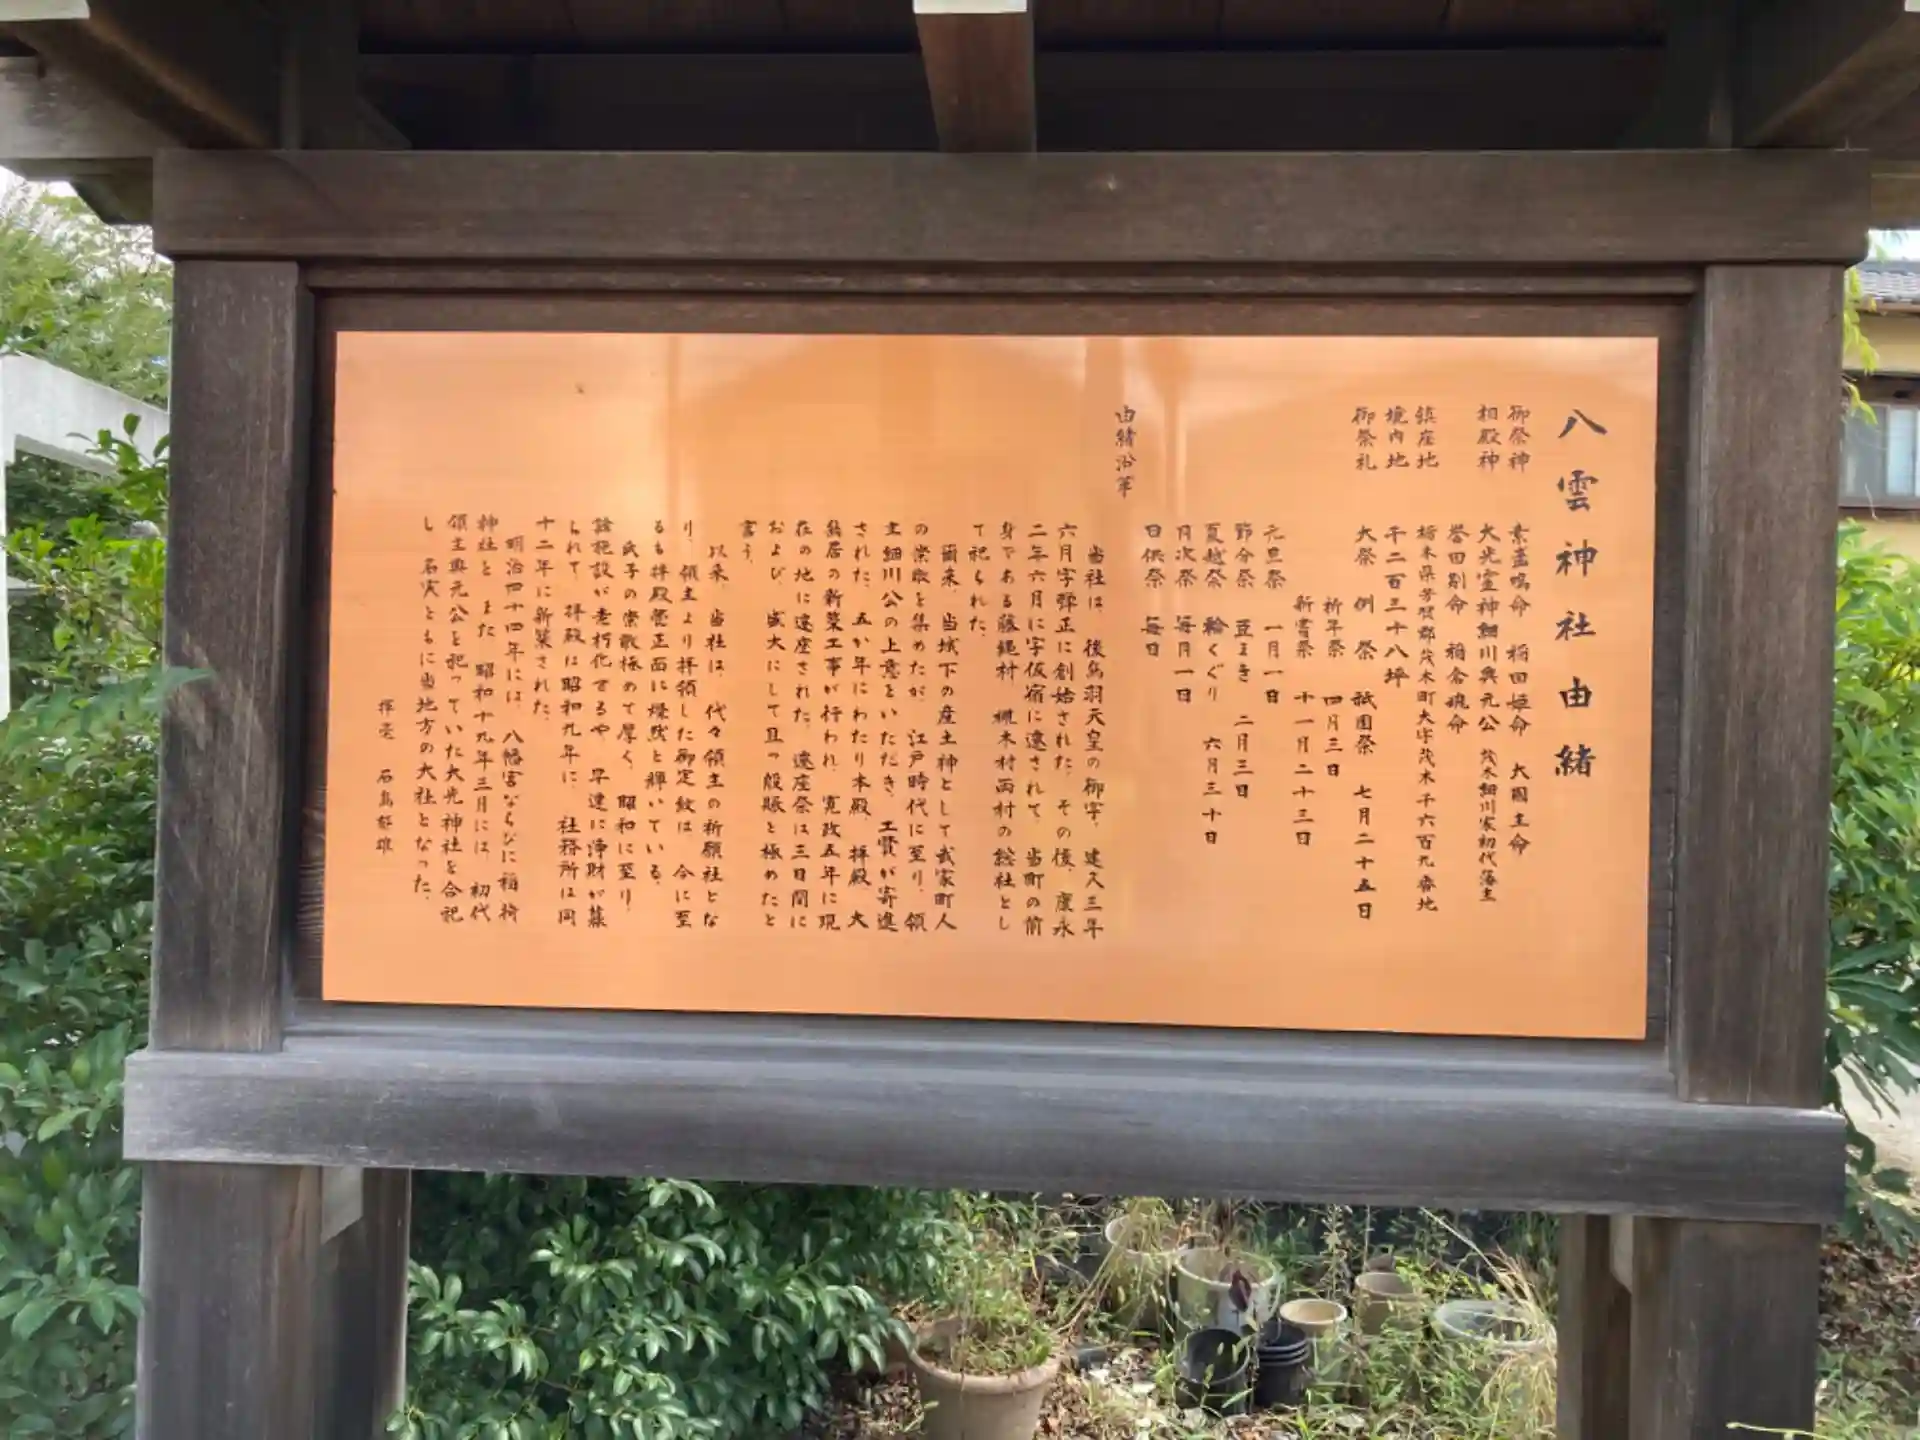 八雲神社由緒
御祭神 素盞嗚命 稲田姫命 大國主命
相殿神 大光霊神細川興元公 茂木細川家初代藩主
誉田別命 稲倉魂命
鎮座地 栃木県芳賀郡茂木町大字茂木千六百九番地
境内地 千二百三十八坪
御祭礼 大祭 例祭 祇園祭 七月二十五日
祈年祭 四月三日
新嘗祭 十一月二十三日
元旦祭 一月一日
節分祭 豆まき 二月三日
夏越祭 輪くぐり 六月三十日
月次祭 毎月一日
日供祭 毎日
由緒沿革
当社は、後鳥羽天皇の御宇、建久三年
六月字弾正に創始された。その後、康永
二年六月に字仮宿に遷されて、当町の前
身である藤縄村、槻木村両村の総社とし
て祀られた。
爾来、当城下の産土神として武家町人
の崇敬を集めたが、江戸時代に至り、領
主細川公の上意をいただき、工費が寄進
された。五か年にわたり本殿、拝殿、大
鳥居の新築工事が行われ、寛政五年に現
在の地に遷座された。遷座祭は三日間に
および、盛大にして且つ殷賑を極めたと
言う。
以来、当社は、代々領主の祈願社とな
り、領主より拝領した御定紋は、今に至
るも拝殿甍正面に燦然と輝いている。
氏子の崇敬極めて厚く、昭和に至り、
諸施設が老朽化するや、早速に浄財が募
られて、拝殿は昭和九年に、社務所は同
十二年に新築された。
明治四十四年には、八幡宮ならびに稲荷
神社と、また、昭和十九年三月には、初代
領主興元公を祀っていた大光神社を合祀
し、名実ともに当地方の大社となった。
揮毫 石島 雄